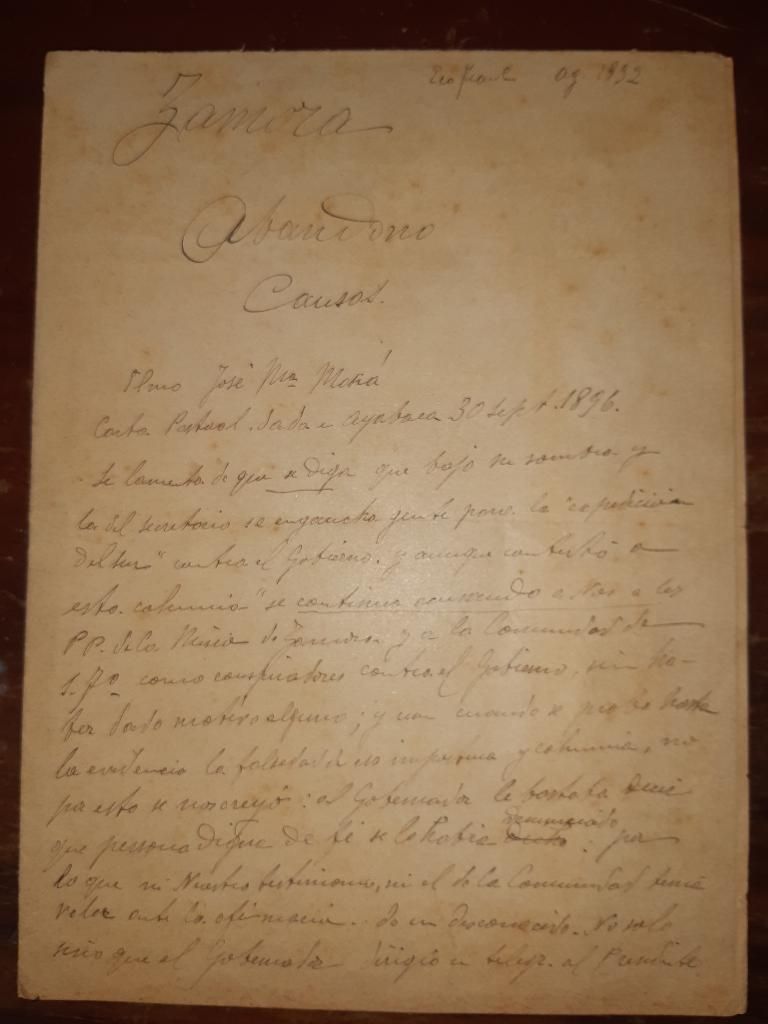 ag. 1932
Zamora
Abandono
Causas.
Ilmo José Mª Masiá
Carta Pastoral dada en Ayabaca 30 sept. 1896.
se lamenta de que se diga que bajo su sombra y
la del secretario se engancha gente para la "expedición
del sur" contra el Gobierno. y aunque contestó a
esta calumnia "se continua acusando a Nos a los
PP. de la Misión de Zamora y a la Comunidad de
S. Fº como conspiradores contra el Gobierno, sin ha-
ber dado motivo alguno; y aun cuando se probó hasta
la evidencia la falsedad de esa impostura y calumnia, no
por esto se nos creyó: al Gobernador le bastaba decir
que persona digna de fe se lo había denunciado: por
lo que ni Nuestro testimonio, ni el de la Comunidad tenia
valor ante la afirmación de un desconocido. No solo
sino que el Gobernador dirigió un telegr. al Presidente